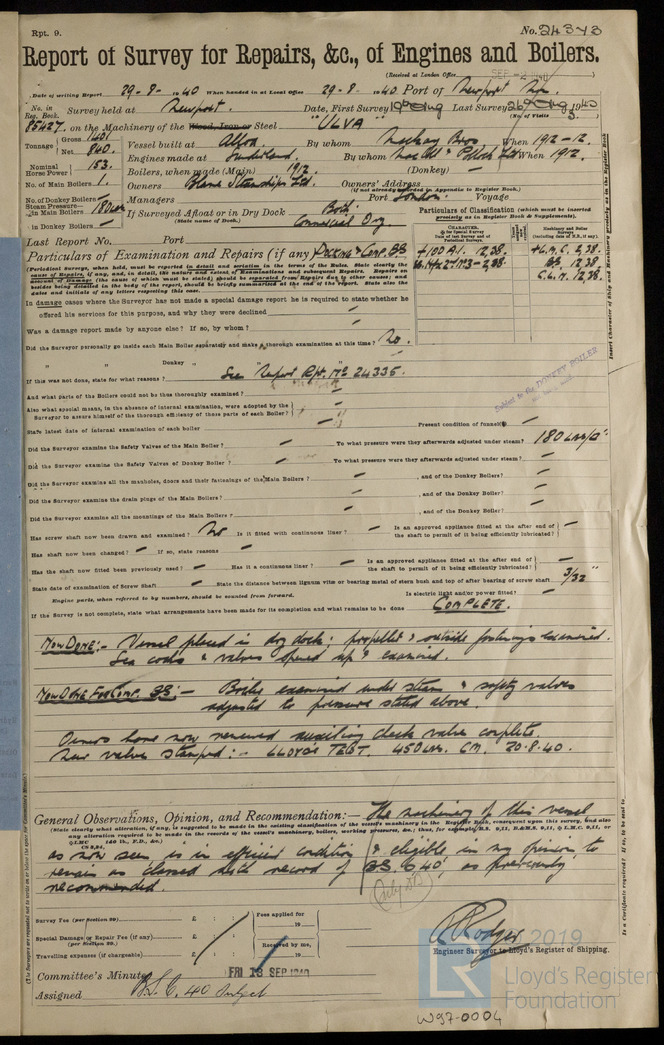 Rpt. 9.
No. 24343
Report of Survey for Repairs, &c., of Engines and Boilers.
(Received at London Office SEP -2 1940)
Date of writing Report 29-8-1940 When handed in at Local Office 29-8-1940 Port of Newport Mon
No. in Reg. Book. Survey held at Newport. Date, First Survey 19th Aug Last Survey 26th Aug 1940
(No. of Visits 3.)
85427. on the Machinery of the Wood, Iron or Steel "ULVA"
Tonnage Gross 1401 Net 840.
Vessel built at Alloa By whom Mackay Bros When 1912-12.
Engines made at Sunderland. By whom MacColl & Pollock Ltd When 1912.
Nominal Horse Power 153.
Boilers, when made (Main) 1912. (Donkey) —
No. of Main Boilers 1.
Owners Steamships Ltd. Owners' Address
(if not already recorded in Appendix to Register Book.)
No. of Donkey Boilers —
Managers Port London. Voyage
Steam Pressure— in Main Boilers 180 lbs
If Surveyed Afloat or in Dry Dock Both.
(State name of Dock.) Commercial Dry.
in Donkey Boilers —
Particulars of Classification (which must be inserted precisely as in Register Book & Supplements).
Last Report No. Port
Particulars of Examination and Repairs (if any) Docking & Comp. BS
+100A1. 12,38.
+L.M.C. 2,38.
BS. 12.38
In damage cases where the Surveyor has not made a special damage report he is required to state whether he
offered his services for this purpose, and why they were declined —
Was a damage report made by anyone else? If so, by whom? —
Did the Surveyor personally go inside each Main Boiler separately and make a thorough examination at this time? No.
" " Donkey " " "
If this was not done, state for what reasons? See Newport Rpt. No 24335.
And what parts of the Boilers could not be thus thoroughly examined?
Also what special means, in the absence of internal examination, were adopted by the
Surveyor to assure himself of the thorough efficiency of those parts of each Boiler?
Subject to the DONKEY BOILER
State latest date of internal examination of each boiler Present condition of funnel(s)
Did the Surveyor examine the Safety Valves of the Main Boiler? — To what pressure were they afterwards adjusted under steam? 180 lbs/□"
Did the Surveyor examine the Safety Valves of Donkey Boiler? — To what pressure were they afterwards adjusted under steam? —
Did the Surveyor examine all the manholes, doors and their fastenings of the Main Boilers? — , and of the Donkey Boilers? —
Did the Surveyor examine the drain plugs of the Main Boilers? — , and of the Donkey Boilers? —
Did the Surveyor examine all the mountings of the Main Boilers? — , and of the Donkey Boilers? —
Has screw shaft now been drawn and examined? No Is it fitted with continuous liner? — Is an approved appliance fitted at the after end of the shaft to permit of it being efficiently lubricated? —
Has shaft now been changed? — If so, state reasons —
Has the shaft now fitted been previously used? — Has it a continuous liner? — Is an approved appliance fitted at the after end of the shaft to permit of it being efficiently lubricated? —
State date of examination of Screw Shaft — State the distance between lignum vitæ or bearing metal of stern bush and top of after bearing of screw shaft 3/32"
Engine parts, when referred to by numbers, should be counted from forward. Is electric light and/or power fitted? —
If the Survey is not complete, state what arrangements have been made for its completion and what remains to be done COMPLETE.
Now Done:- Vessel placed in dry dock; propeller & outside fastenings examined.
Sea cocks & valves opened up & examined.
Now Done For Comp. BS:- Boiler examined under steam & safety valves
adjusted to pressure stated above.
Owners have now renewed auxiliary check valve complete.
New valve stamped:- LLOYD'S TEST. 450 lbs. CM. 20-8-40.
General Observations, Opinion, and Recommendation:— The machinery of this vessel
(State clearly what alteration, if any, is suggested to be made in the existing classification of the vessel's machinery in the Register Book, consequent upon this survey, and also
any alteration required to be made in the records of the vessel's machinery, boilers, working pressures, &c.; thus, for example, B.S. 9,11, B.&M.S. 9,11, or L.M.C. 9,11, or
as now seen, is in efficient condition & eligible in my opinion to
remain as classed with record of BS. 6,40, as previously
recommended.
Survey Fee (per Section 29) £ : :
Special Damage or Repair Fee (if any) (per Section 29.) £ : :
Travelling expenses (if chargeable) £ : :
Fees applied for 19
Received by me, 19
R. Rodger
Engineer Surveyor to Lloyd's Register of Shipping.
Committee's Minute FRI 13 SEP 1940
Assigned B.S. 6.40 Subject
© 2019
Lloyd's Register
Foundation
W97-0004